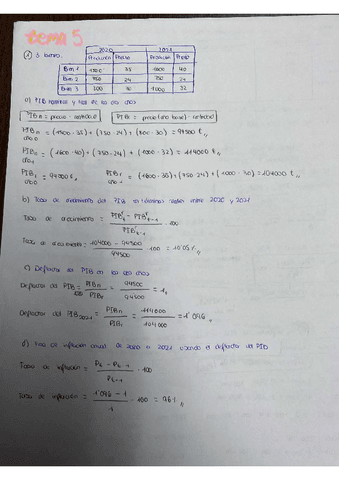 tema 5
① 3 bienes.
2020 2021
Producción Precio Producción Precio
Bien 1 1500 35 1600 40
Bien 2 750 24 750 24
Bien 3 800 30 1000 32
a) PIB nominal y real de los dos años
PIBn = precio · cantidad PIBr = precio (año base) · cantidad
PIBn = (1500 · 35) + (750 · 24) + (800 · 30) = 94500 €
año 0
PIBn = (1600 · 40) + (750 · 24) + (1000 · 32) = 114000 €
año 1
PIBr = 94500 € PIBr = (1600 · 35) + (750 · 24) + (1000 · 30) = 104000 €
año 0 año 1
b) Tasa de crecimiento del PIB en términos reales entre 2020 y 2021
Tasa de crecimiento = PIBʳt - PIBʳt-1 / PIBʳt-1 · 100
Tasa de crecimiento = 104000 - 94500 / 94500 · 100 = 10'05 %
c) Deflactor del PIB en los dos años
Deflactor del PIB 2020 = PIBn / PIBr = 94500 / 94500 = 1
Deflactor del PIB 2021 = PIBn / PIBr = 114000 / 104000 = 1'096
d) Tasa de inflación anual de 2020 a 2021 usando el deflactor del PIB
Tasa de inflación = Pt - Pt-1 / Pt-1 · 100
Tasa de inflación = 1'096 - 1 / 1 · 100 = 9'6 %